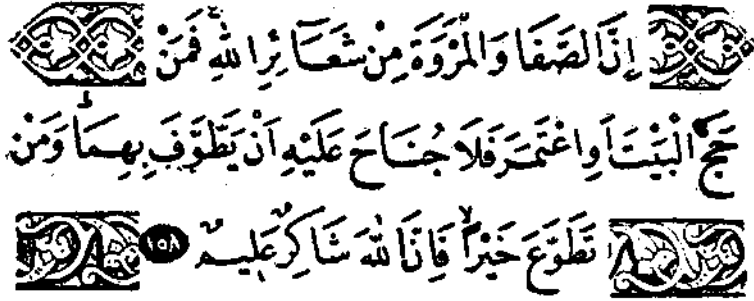 اِنَّ الصَّفَا وَالْمَرْوَةَ مِنْ شَعَآئِرِ اللهِ ۚ فَمَنْ
حَجَّ الْبَيْتَ اَوِ اعْتَمَرَ فَلَا جُنَاحَ عَلَيْهِ اَنْ يَّطَّوَّفَ بِهِمَا ؕ وَمَنْ
تَطَوَّعَ خَيْرًا ۙ فَاِنَّ اللهَ شَاكِرٌ عَلِيْمٌ ١٥٨